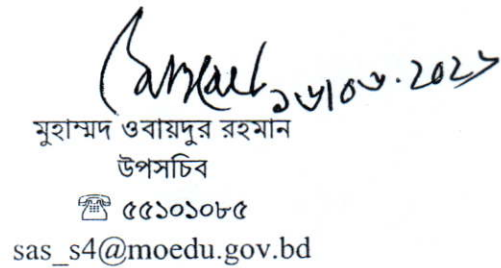 ১৬|০৬.২০২১
মুহাম্মদ ওবায়দুর রহমান
উপসচিব
☎ ৫৫১০১০৮৫
sas_s4@moedu.gov.bd